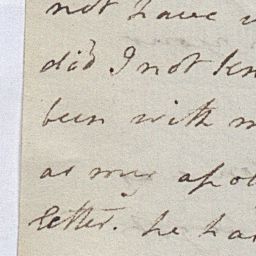 not have
did I not kn
been with m
as my apo
letter. he ha